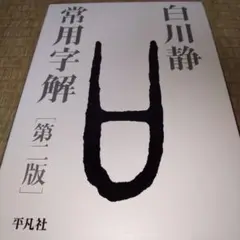 白川静
常用字解
［第二版］
平凡社